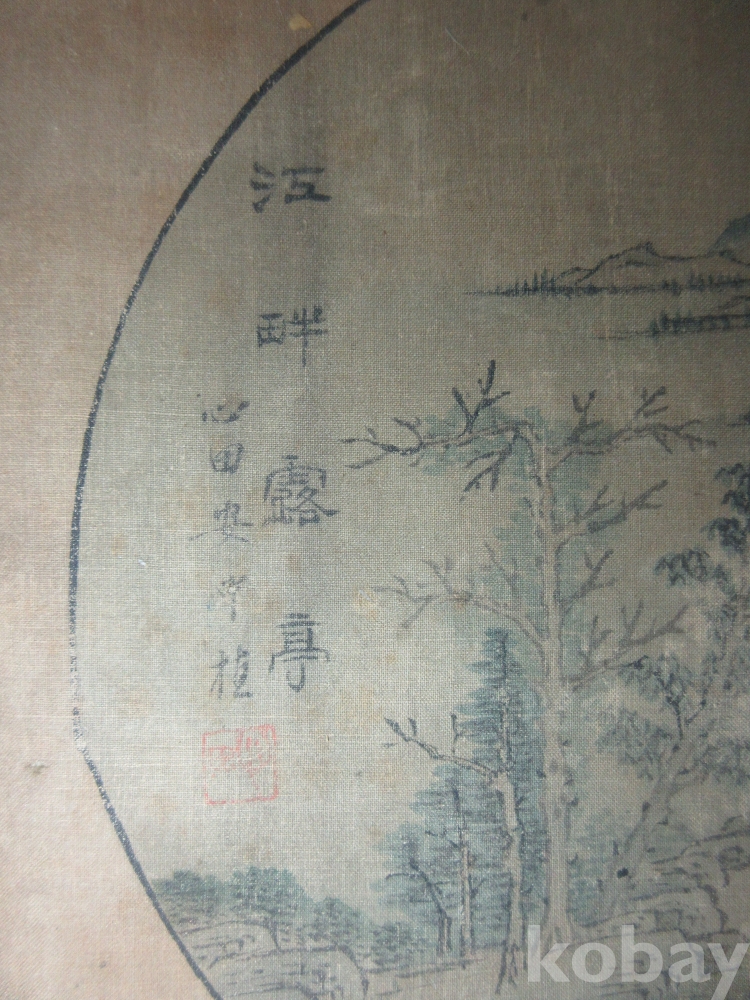 江畔露亭
心田安中植
kobay